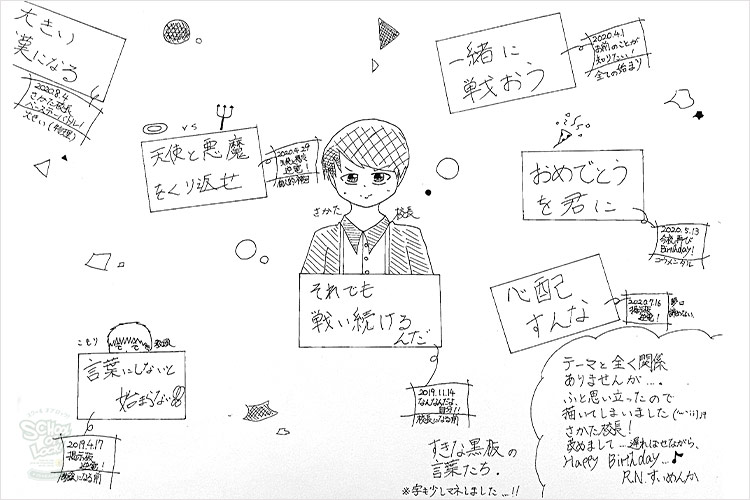 大きい
漢になる
2020.8.4
さかた校長
バースデーパトル!
一緒に
戦おう
2020.4.1
お前のことが
知りたい!
全ての始まり
vs
天使と悪魔
をくり返せ
2020.4.29
おめでとう
を君に
2020.5.13
今夜、再び
Birthday!
さかた
校長
それでも
戦い続ける
んだ
2019.11.14
なんなんだよ、
自分!!
校長になる前
心配
すんな
2020.7.16
掲示板
逆電!
こもり
教頭
言葉にしないと
始まらない
2019.4.17
掲示板
逆電!
教頭になる前
すきな黒板の
言葉たち.
※字も少しマネしました…!!
テーマと全く関係
ありませんが….
ふと思い立ったので
描いてしまいました
さかた校長!
改めまして…遅ればせながら、
Happy Birthday…♪
R.N.すいめんか